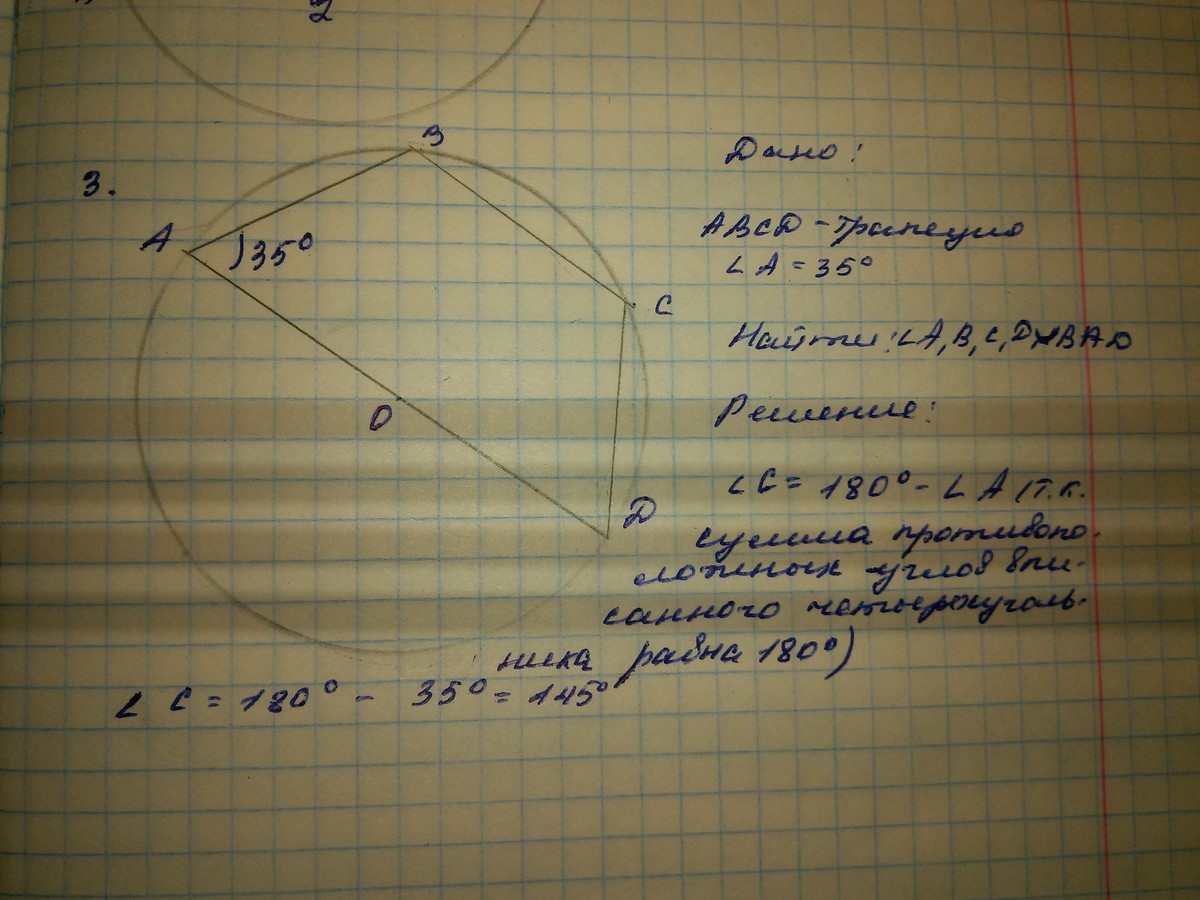 2
3.
B
A
35°
C
O
D
Дано:
ABCD - трапеция
∠A = 35°
Найти: ∠A, B, C, D
Решение:
∠C = 180° - ∠A (т.к.
сумма противопо-
ложных углов впи-
санного четырехуголь-
ника равна 180°)
∠C = 180° - 35° = 145°